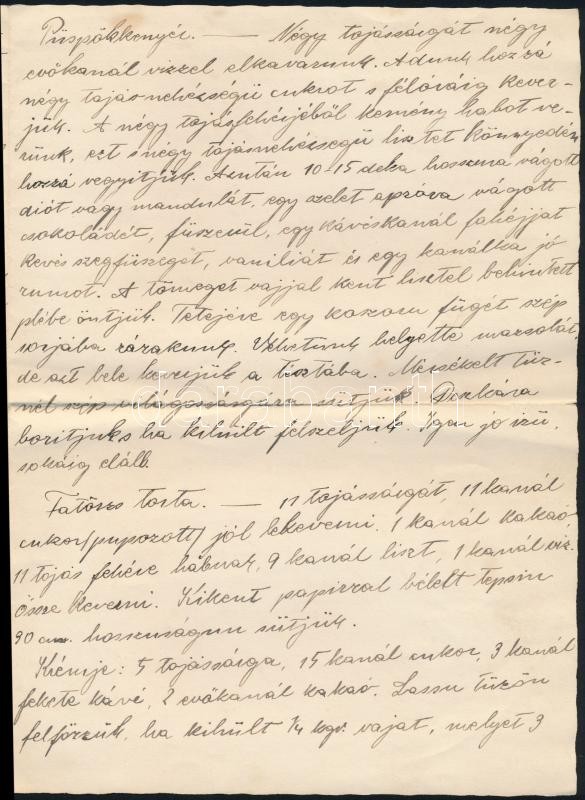 Püspökkenyér. — Négy tojássárgát négy
evőkanál vizzel elkavarunk. Adunk hozzá
négy tojásnehézségü cukrot s félóráig kever-
jük. A négy tojásfehérjéből kemény habot ve-
rünk, ezt s négy tojásnehézségü lisztet könnyedén
hozzá vegyitjük. Azután 10-15 deka hosszura vágott
diót vagy mandulát, egy szelet apróra vágott
csokoládét, füszerül, egy kávéskanál fahéjjat
kevés szegfüszeget, vaniliát és egy kanálka jó
rumot. A tömeget vajjal kent liszttel behintett
plébe öntjük. Tetejére egy koszoru fügét szép
sorjába rárakunk. Vehetünk helyette mazsolát,
de azt bele keverjük a tésztába. Mérsékelt tüz-
nél szép világossárgára sütjük. Deszkára
boritjuk s ha kihült felszeljük. Igen jó izü,
sokáig eláll.
Fatörzs torta. — 11 tojássárgát, 11 kanál
cukor (puporott) jól kikeverni. 1 kanál kakaó,
11 tojás fehére habnak, 9 kanál liszt, 1 kanál viz.
Össze keverni. Kikent papirral bélelt tepsin
90 cm. hosszuságun sütjük.
Krémje: 5 tojássárga, 15 kanál cukor, 3 kanál
fekete kávé, 2 evőkanál kakaó. Lassu tüzön
felfőzzük, ha kihült 1/4 kgr. vajat, melyet 3